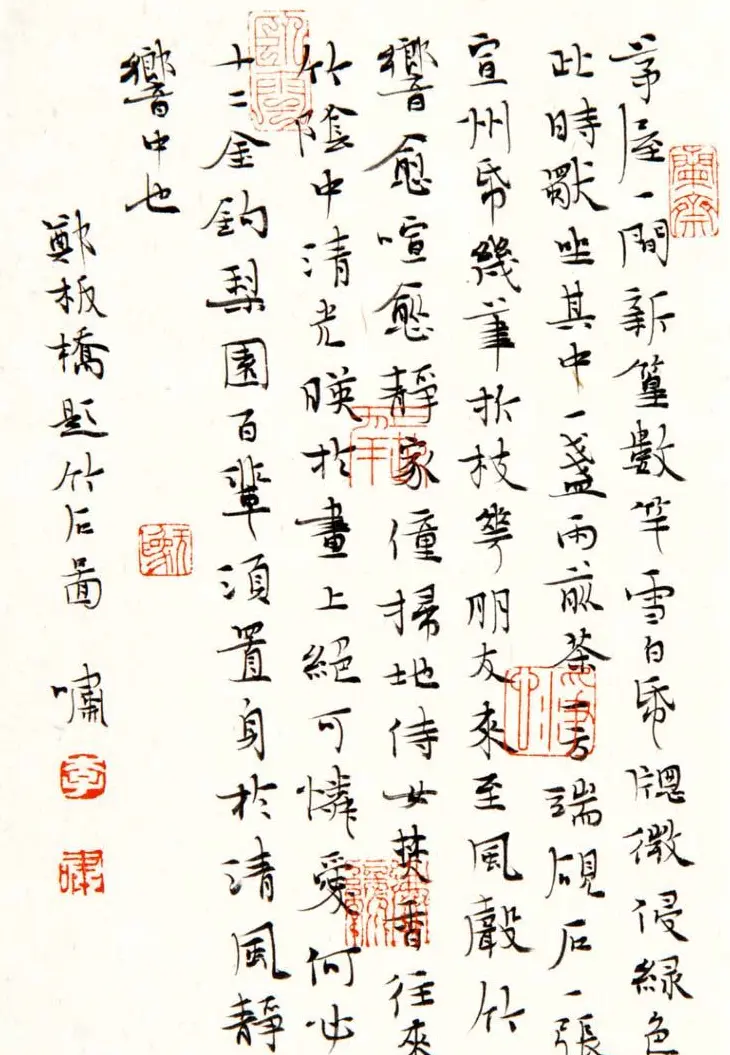 茅屋一間新篁數竿雪白帋牕微侵綠色
此時獨坐其中一盞雨前茶一方端硯石一張
宣州帋幾筆折枝花朋友來至風聲竹
響愈喧愈靜家僮掃地侍女焚香往來
竹陰中清光暎於畫上絕可憐愛何必
十二金釵梨園百輩須置身於清風靜
響中也
鄭板橋題竹石圖 嘯
李
嘯